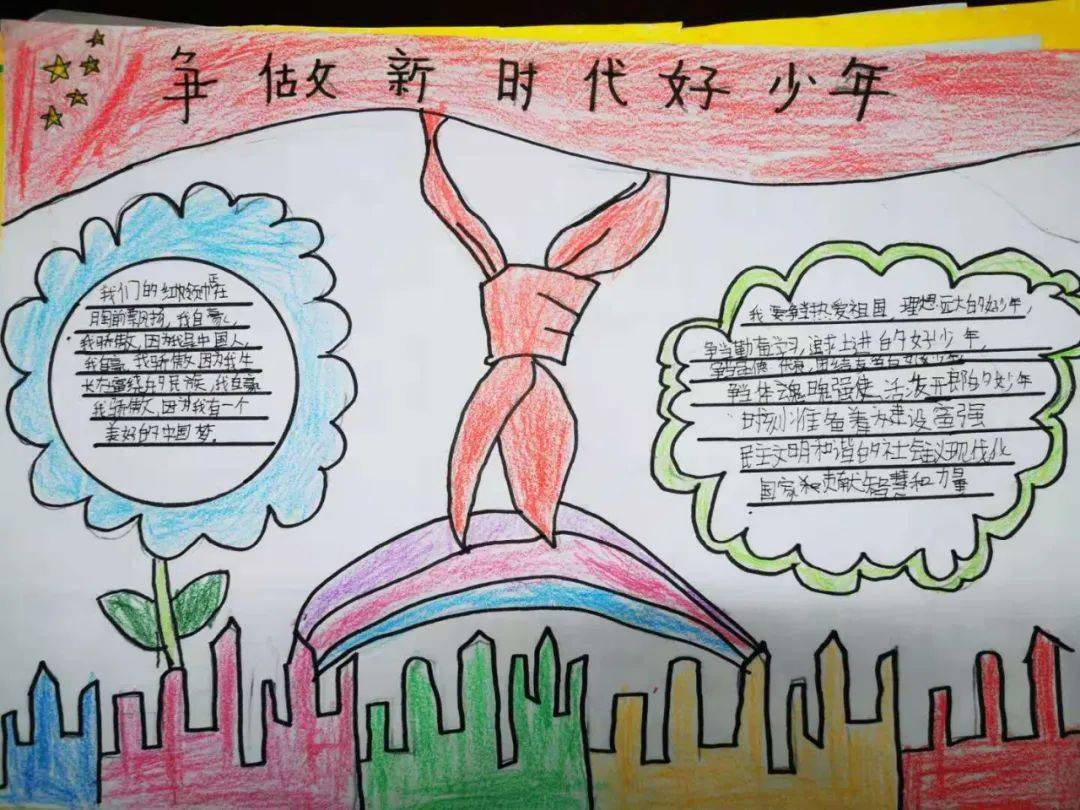 争做新时代好少年
我们的红领巾在
胸前飘扬,我自豪,
我骄傲,因为我是中国人,
我自豪 我骄傲 因为我生
长在 的民族,我自豪
我骄傲,因为我有一个
美好的中国梦.
我要争当热爱祖国、理想远大的好少年,
争当勤奋学习,追求上进的好少年,
争当 团结友爱的好少年
争当体魄强健、活泼开朗的好少年
时刻准备着为建设富强
民主文明和谐的社会主义现代化
国家 贡献智慧和力量